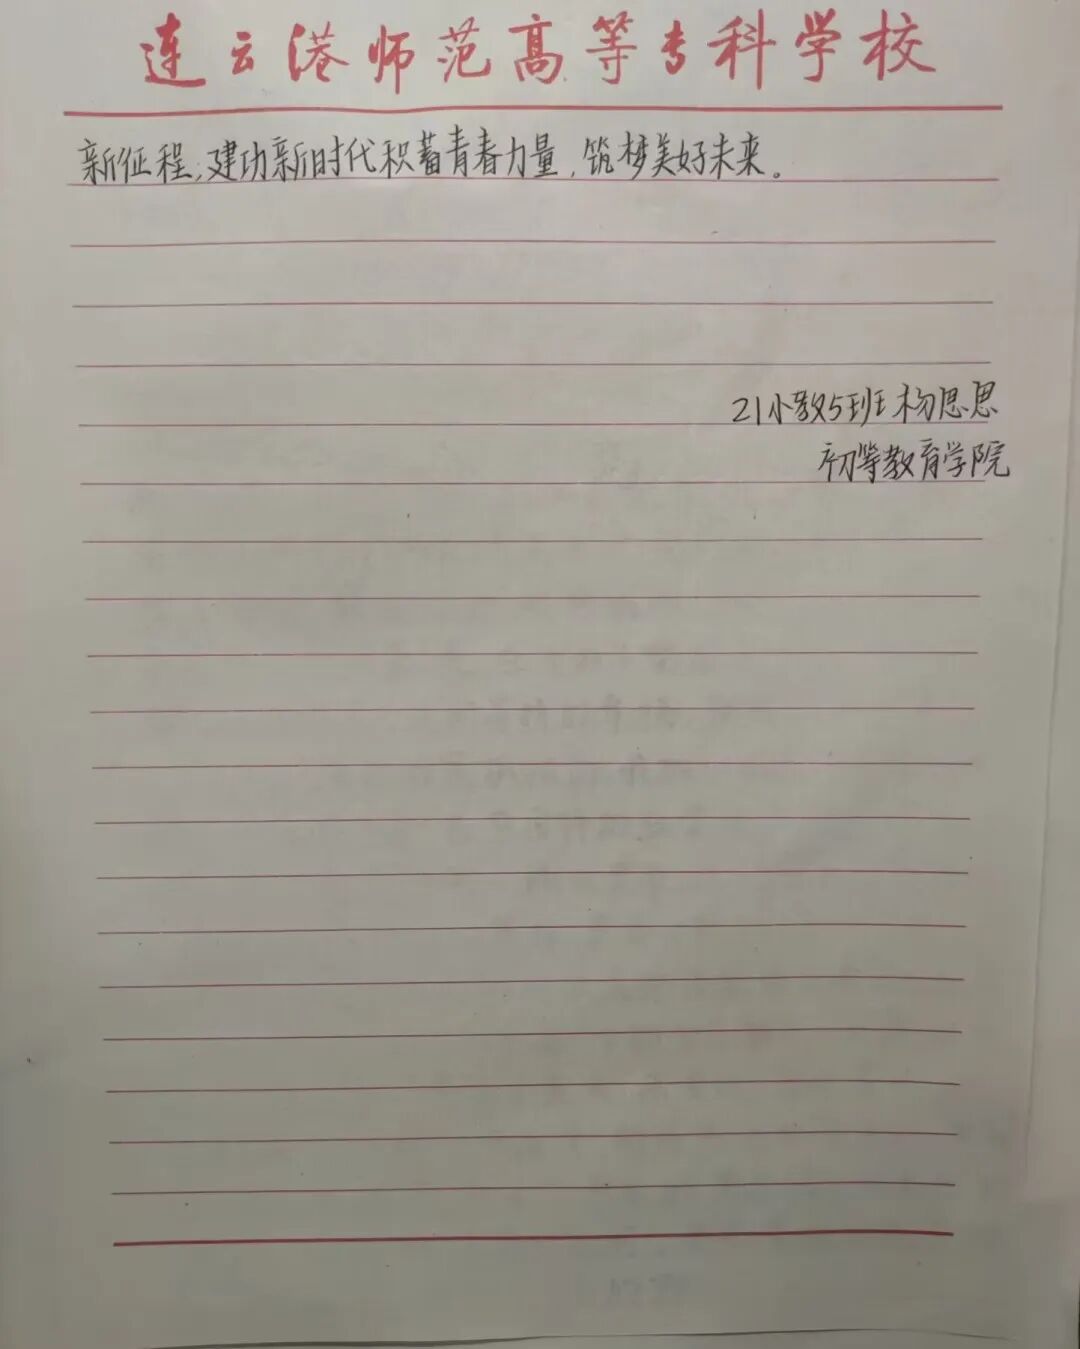 连云港师范高等专科学校
新征程,建功新时代积蓄青春力量,筑梦美好未来。
21小教5班杨思思
初等教育学院